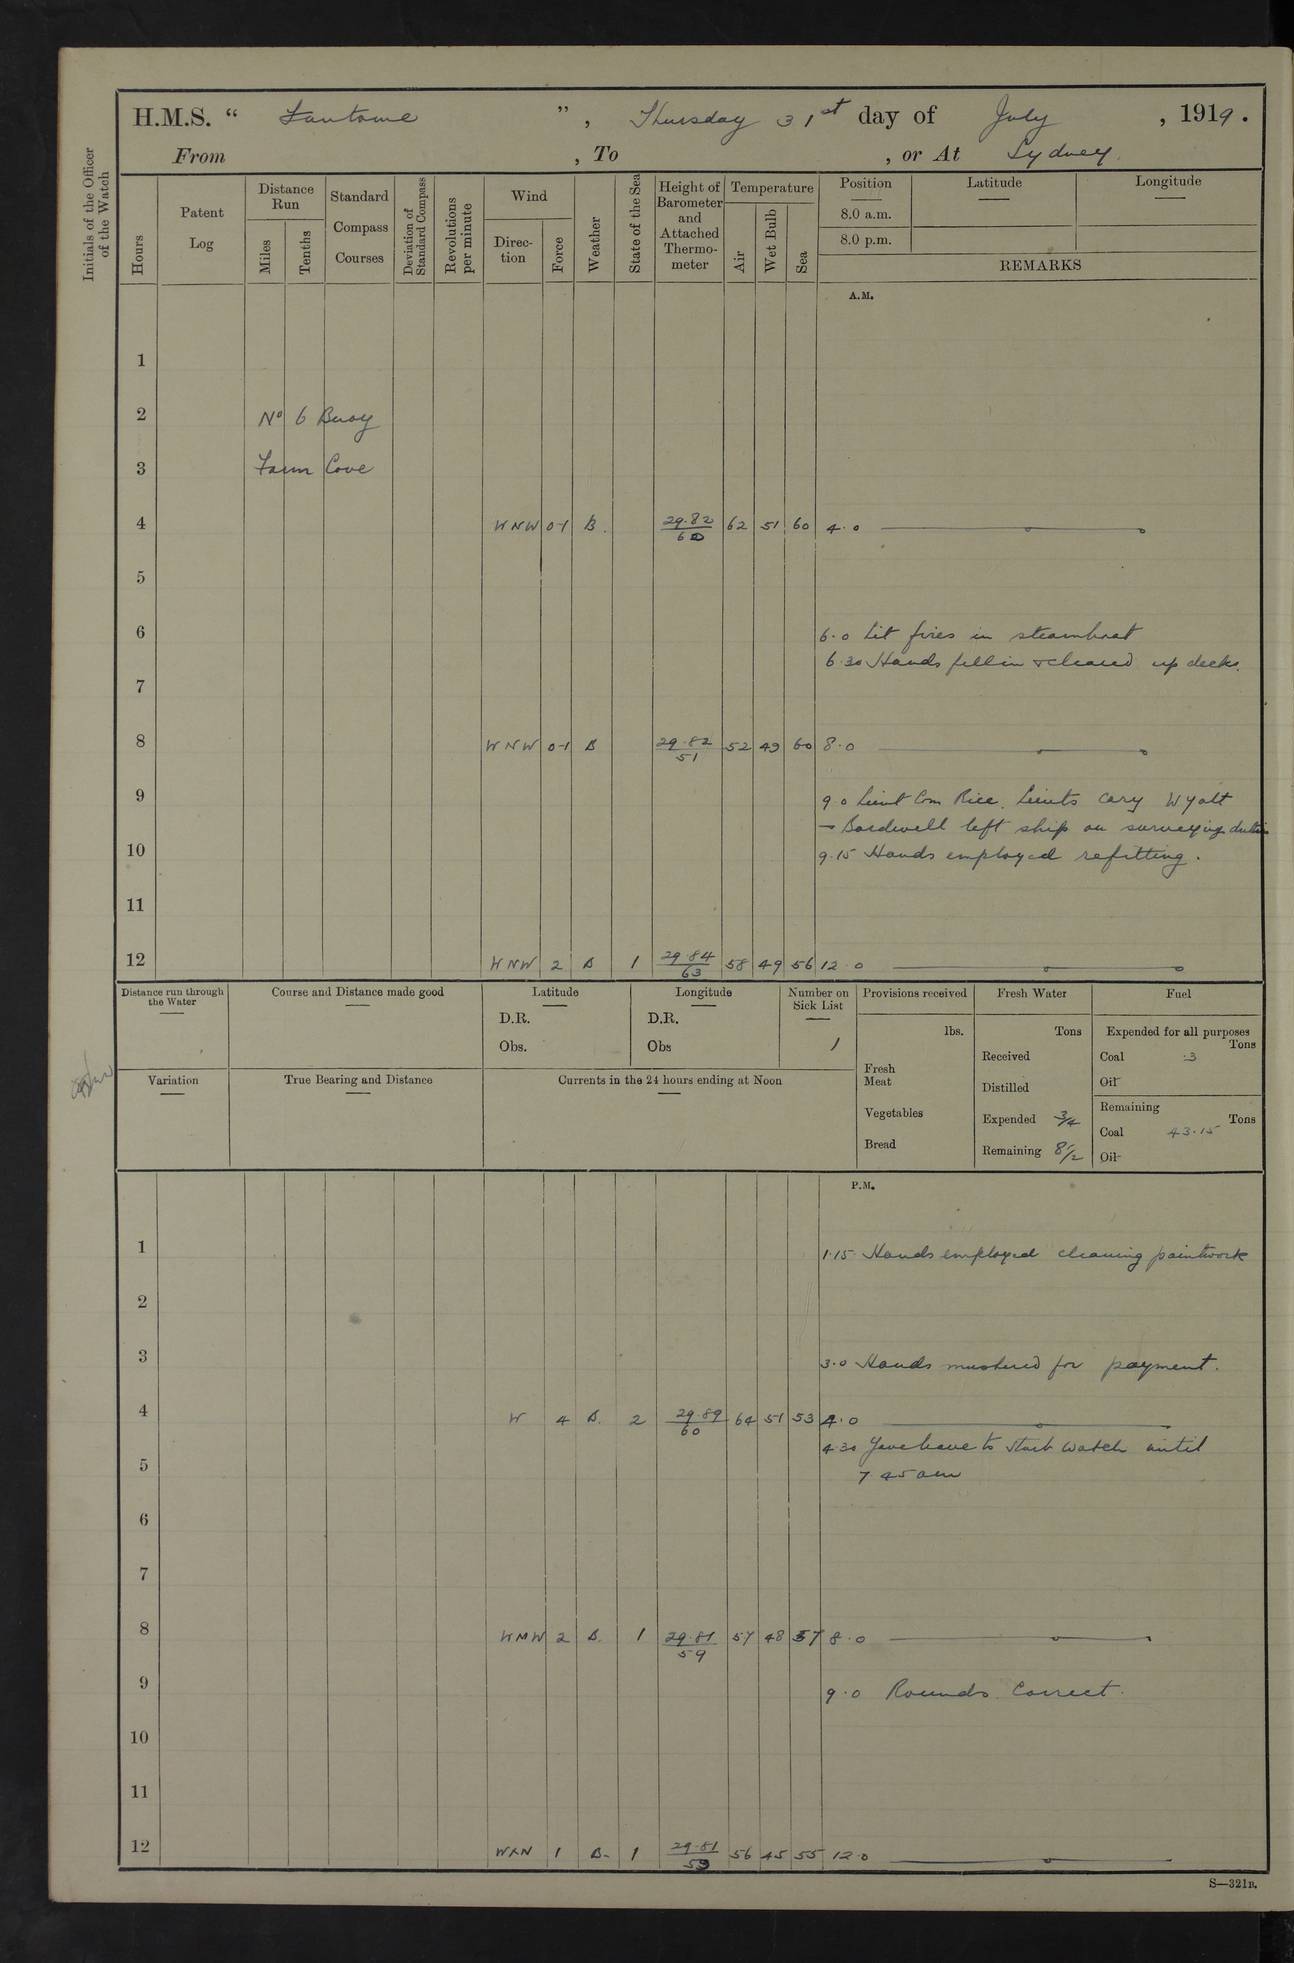 H.M.S. " Fantome ", Thursday 31st day of July, 1919.
From , To , or At Sydney.
Initials of the Officer of the Watch
Hours
Patent Log
Distance Run
Miles
Tenths
Standard Compass Courses
Deviation of Standard Compass
Revolutions per minute
Wind
Direction
Force
Weather
State of the Sea
Height of Barometer and Attached Thermometer
Temperature
Air
Wet Bulb
Sea
Position Latitude Longitude
8.0 a.m.
8.0 p.m.
REMARKS
A.M.
1
2 No 6 Buoy
3 Farm Cove
4 WNW 0-1 B. 29.82/60 62 51 60 4.0
5
6 6.0 Lit fires in steamboat
6.30 Hands fell in & cleared up decks.
7
8 WNW 0-1 B 29.82/51 52 49 60 8.0
9 9.0 Lieut Com Rice. Lieuts Cary Wyatt
Bardwell left ship on surveying duties
10 9.15 Hands employed refitting.
11
12 WNW 2 B 1 29.84/63 58 49 56 12.0
Distance run through the Water
Course and Distance made good
Latitude
D.R.
Obs.
Longitude
D.R.
Obs
Number on Sick List
1
Variation
True Bearing and Distance
Currents in the 24 hours ending at Noon
Provisions received
lbs.
Fresh Meat
Vegetables
Bread
Fresh Water
Tons
Received
Distilled
Expended 3/4
Remaining 8 1/2
Fuel
Expended for all purposes
Tons
Coal .3
Oil
Remaining
Tons
Coal 43.15
Oil
P.M.
1 1.15 Hands employed cleaning paintwork
2
3 3.0 Hands mustered for payment.
4 W 4 B. 2 29.89/60 64 51 53 4.0
4.30 Gave leave to Starb watch until
5 7.45 am
6
7
8 WNW 2 B. 1 29.81/59 57 48 57 8.0
9 9.0 Rounds. Correct.
10
11
12 WxN 1 B- 1 29.81/59 56 45 55 12.0
S—321B.